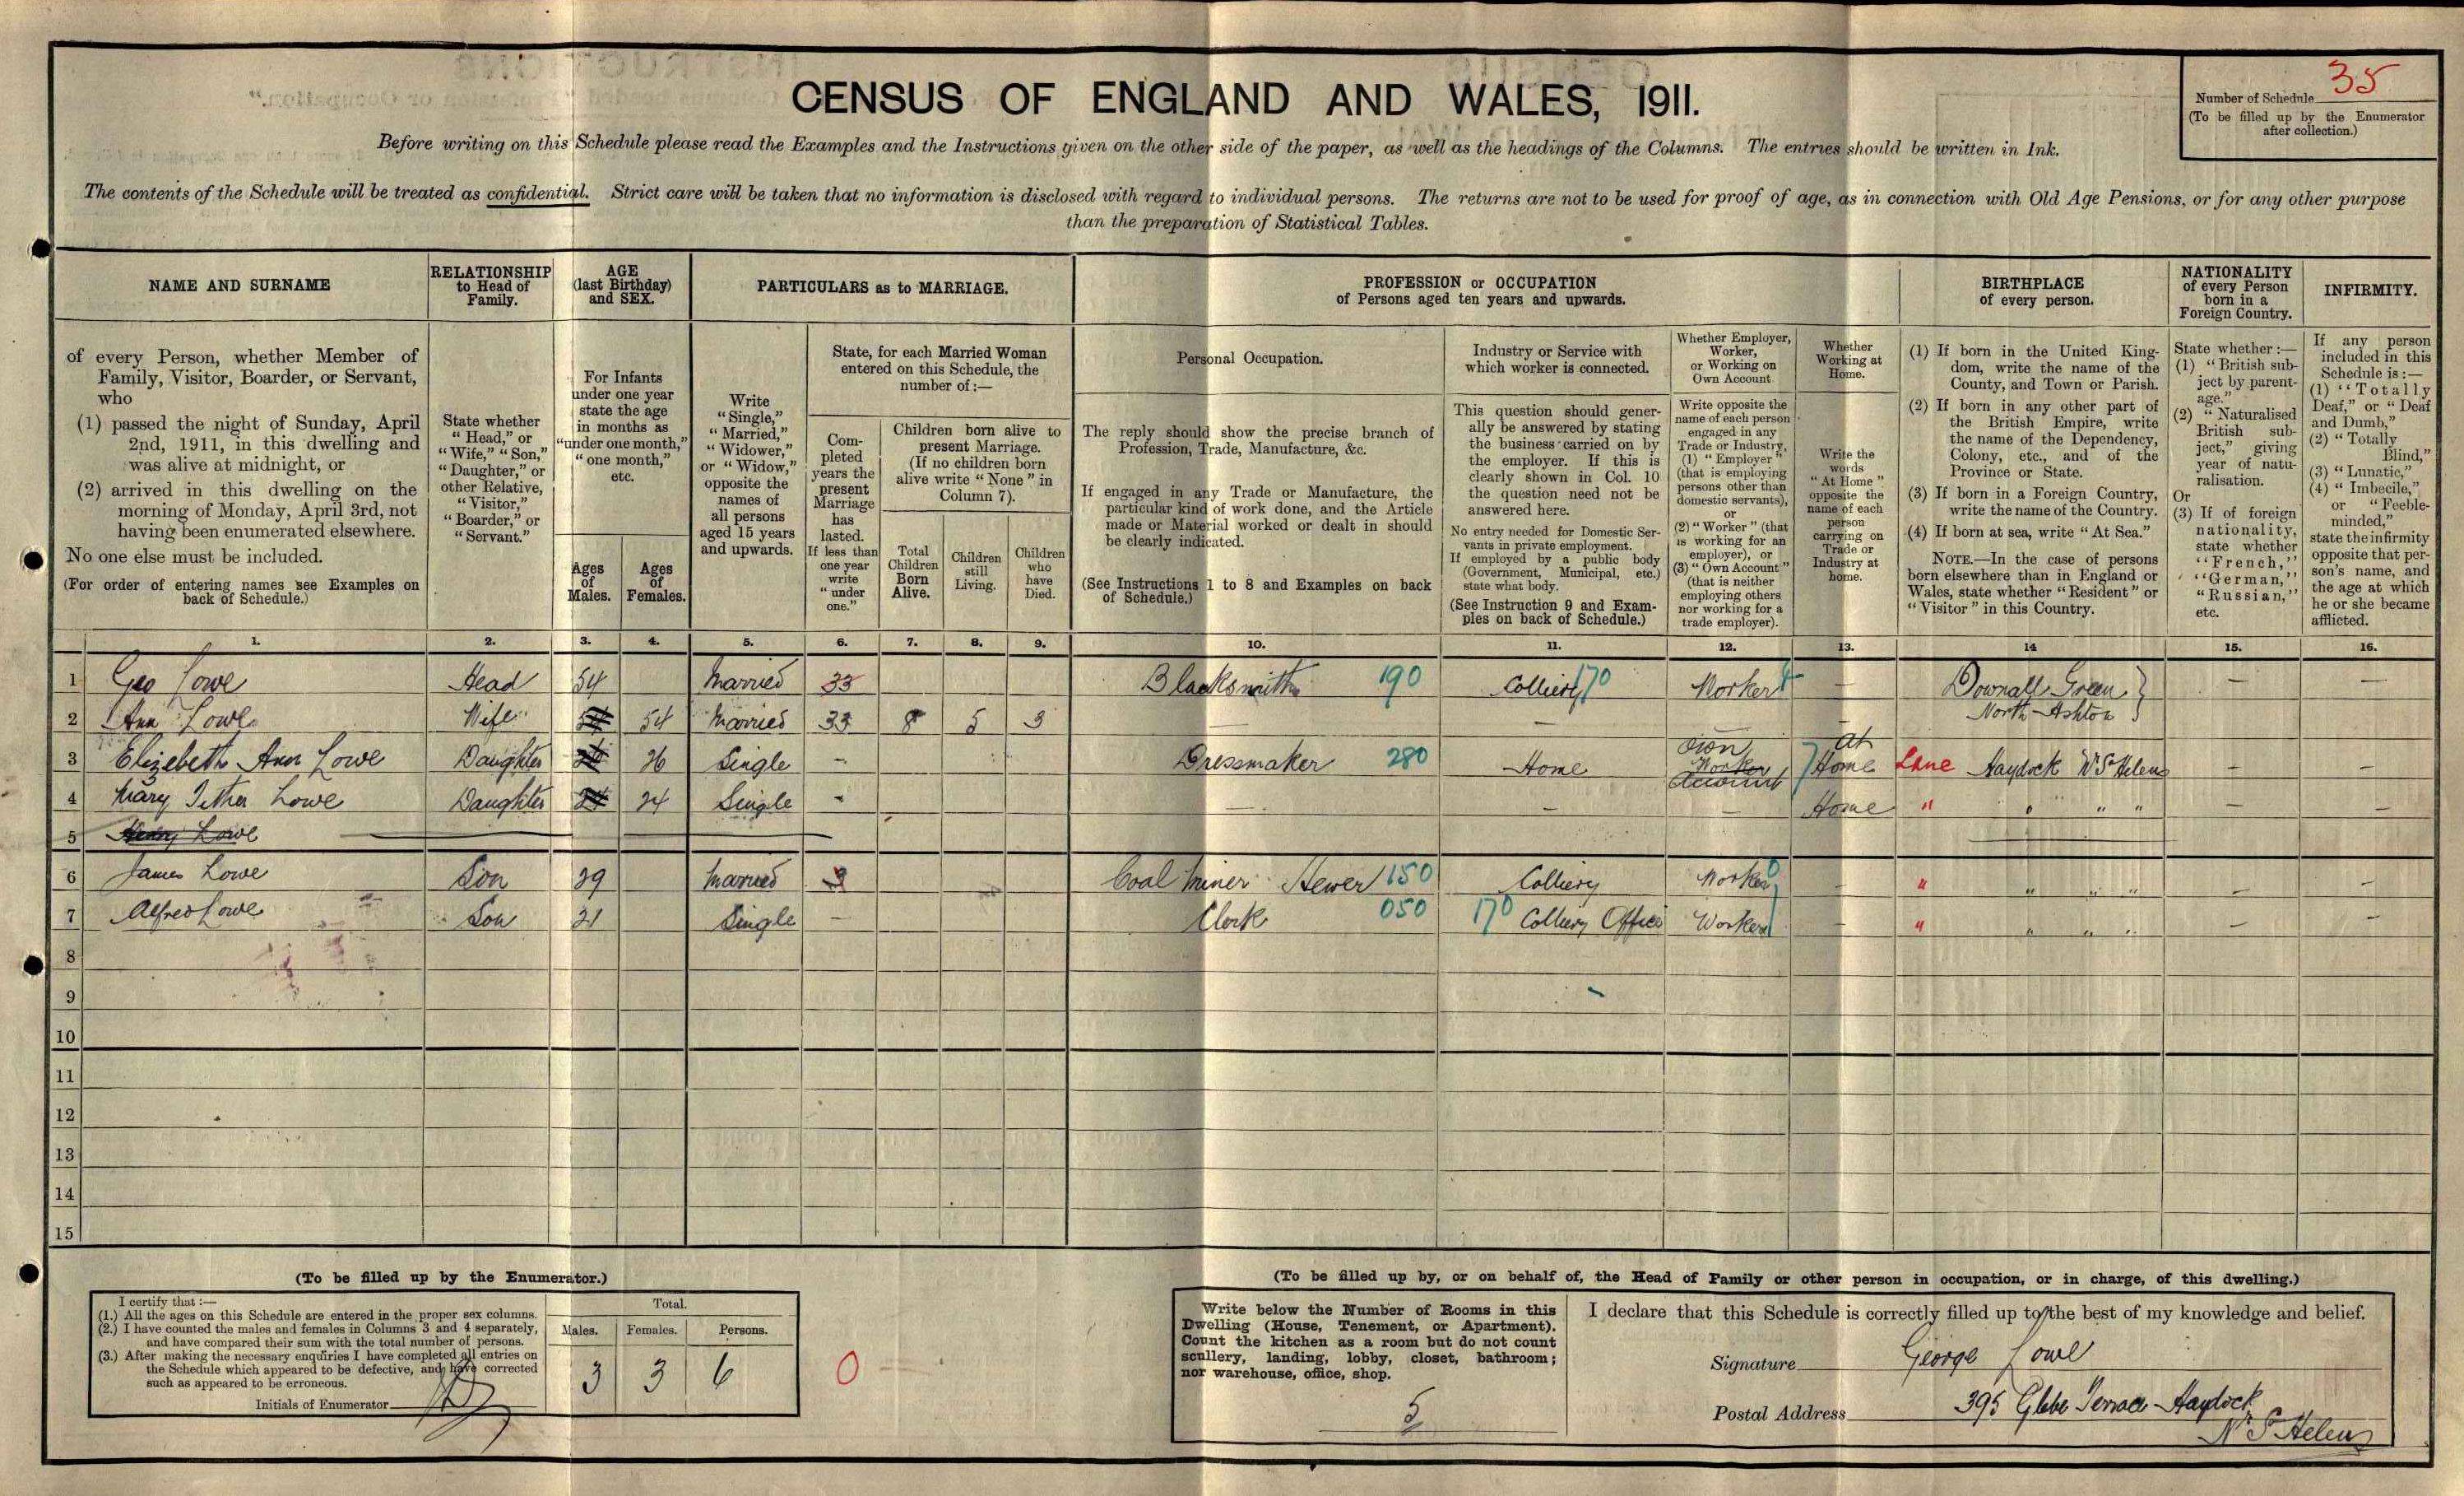 CENSUS OF ENGLAND AND WALES, 1911.
Number of Schedule 35
(To be filled up by the Enumerator
after collection.)
Before writing on this Schedule please read the Examples and the Instructions given on the other side of the paper, as well as the headings of the Columns. The entries should be written in Ink.
The contents of the Schedule will be treated as confidential. Strict care will be taken that no information is disclosed with regard to individual persons. The returns are not to be used for proof of age, as in connection with Old Age Pensions, or for any other purpose
than the preparation of Statistical Tables.
NAME AND SURNAME
of every Person, whether Member of
Family, Visitor, Boarder, or Servant,
who
(1) passed the night of Sunday, April
2nd, 1911, in this dwelling and
was alive at midnight, or
(2) arrived in this dwelling on the
morning of Monday, April 3rd, not
having been enumerated elsewhere.
No one else must be included.
(For order of entering names see Examples on
back of Schedule.)
RELATIONSHIP
to Head of
Family.
State whether
"Head," or
"Wife," "Son,"
"Daughter," or
other Relative,
"Visitor,"
"Boarder," or
"Servant."
AGE
(last Birthday)
and SEX.
For Infants
under one year
state the age
in months as
"under one month,"
"one month,"
etc.
Ages
of
Males.
Ages
of
Females.
PARTICULARS as to MARRIAGE.
Write
"Single,"
"Married,"
"Widower,"
or "Widow,"
opposite the
names of
all persons
aged 15 years
and upwards.
State, for each Married Woman
entered on this Schedule, the
number of:—
Com-
pleted
years the
present
Marriage
has
lasted.
If less than
one year
write
"under
one."
Children born alive to
present Marriage.
(If no children born
alive write "None" in
Column 7).
Total
Children
Born
Alive.
Children
still
Living.
Children
who
have
Died.
PROFESSION or OCCUPATION
of Persons aged ten years and upwards.
Personal Occupation.
The reply should show the precise branch of
Profession, Trade, Manufacture, &c.
If engaged in any Trade or Manufacture, the
particular kind of work done, and the Article
made or Material worked or dealt in should
be clearly indicated.
(See Instructions 1 to 8 and Examples on back
of Schedule.)
Industry or Service with
which worker is connected.
This question should gener-
ally be answered by stating
the business carried on by
the employer. If this is
clearly shown in Col. 10
the question need not be
answered here.
No entry needed for Domestic Ser-
vants in private employment.
If employed by a public body
(Government, Municipal, etc.)
state what body.
(See Instruction 9 and Exam-
ples on back of Schedule.)
Whether Employer,
Worker,
or Working on
Own Account
Write opposite the
name of each person
engaged in any
Trade or Industry,
(1) "Employer"
(that is employing
persons other than
domestic servants),
or
(2) "Worker" (that
is working for an
employer), or
(3) "Own Account"
(that is neither
employing others
nor working for a
trade employer).
Whether
Working at
Home.
Write the
words
"At Home"
opposite the
name of each
person
carrying on
Trade or
Industry at
home.
BIRTHPLACE
of every person.
(1) If born in the United King-
dom, write the name of the
County, and Town or Parish.
(2) If born in any other part of
the British Empire, write
the name of the Dependency,
Colony, etc., and of the
Province or State.
(3) If born in a Foreign Country,
write the name of the Country.
(4) If born at sea, write "At Sea."
NOTE.—In the case of persons
born elsewhere than in England or
Wales, state whether "Resident" or
"Visitor" in this Country.
NATIONALITY
of every Person
born in a
Foreign Country.
State whether:—
(1) "British sub-
ject by parent-
age."
(2) "Naturalised
British sub-
ject," giving
year of natu-
ralisation.
Or
(3) If of foreign
nationality,
state whether
"French,"
"German,"
"Russian,"
etc.
INFIRMITY.
If any person
included in this
Schedule is:—
(1) "Totally
Deaf," or "Deaf
and Dumb,"
(2) "Totally
Blind,"
(3) "Lunatic,"
(4) "Imbecile,"
or "Feeble-
minded,"
state the infirmity
opposite that per-
son's name, and
the age at which
he or she became
afflicted.
1. 2. 3. 4. 5. 6. 7. 8. 9. 10. 11. 12. 13. 14 15. 16.
1 Geo Lowe Head 54 Married 33 Blacksmith 190 Colliery 170 Worker — Downall Green — —
North Ashton
2 Ann Lowe Wife 54 Married 33 8 5 3 — —
3 Elizebeth Ann Lowe Daughter 26 Single — Dressmaker 280 Home own Worker Account At Home Lane Haydock Nr St Helens — —
4 Mary Lowe Daughter 24 Single - — — — Home " " " " — —
5 Henry Lowe
6 James Lowe Son 29 Married 3 Coal Miner Hewer 150 Colliery Worker — " " " " — —
7 Alfred Lowe Son 21 Single — Clerk 050 170 Colliery Office Worker — " " " " — —
8
9
10
11
12
13
14
15
(To be filled up by the Enumerator.)
I certify that:—
(1.) All the ages on this Schedule are entered in the proper sex columns.
(2.) I have counted the males and females in Columns 3 and 4 separately,
and have compared their sum with the total number of persons.
(3.) After making the necessary enquiries I have completed all entries on
the Schedule which appeared to be defective, and have corrected
such as appeared to be erroneous.
Initials of Enumerator
Total.
Males. Females. Persons.
3 3 6
0
(To be filled up by, or on behalf of, the Head of Family or other person in occupation, or in charge, of this dwelling.)
Write below the Number of Rooms in this
Dwelling (House, Tenement, or Apartment).
Count the kitchen as a room but do not count
scullery, landing, lobby, closet, bathroom;
nor warehouse, office, shop.
5
I declare that this Schedule is correctly filled up to the best of my knowledge and belief.
Signature George Lowe
Postal Address 395 Glebe Terrace Haydock
Nr St Helens